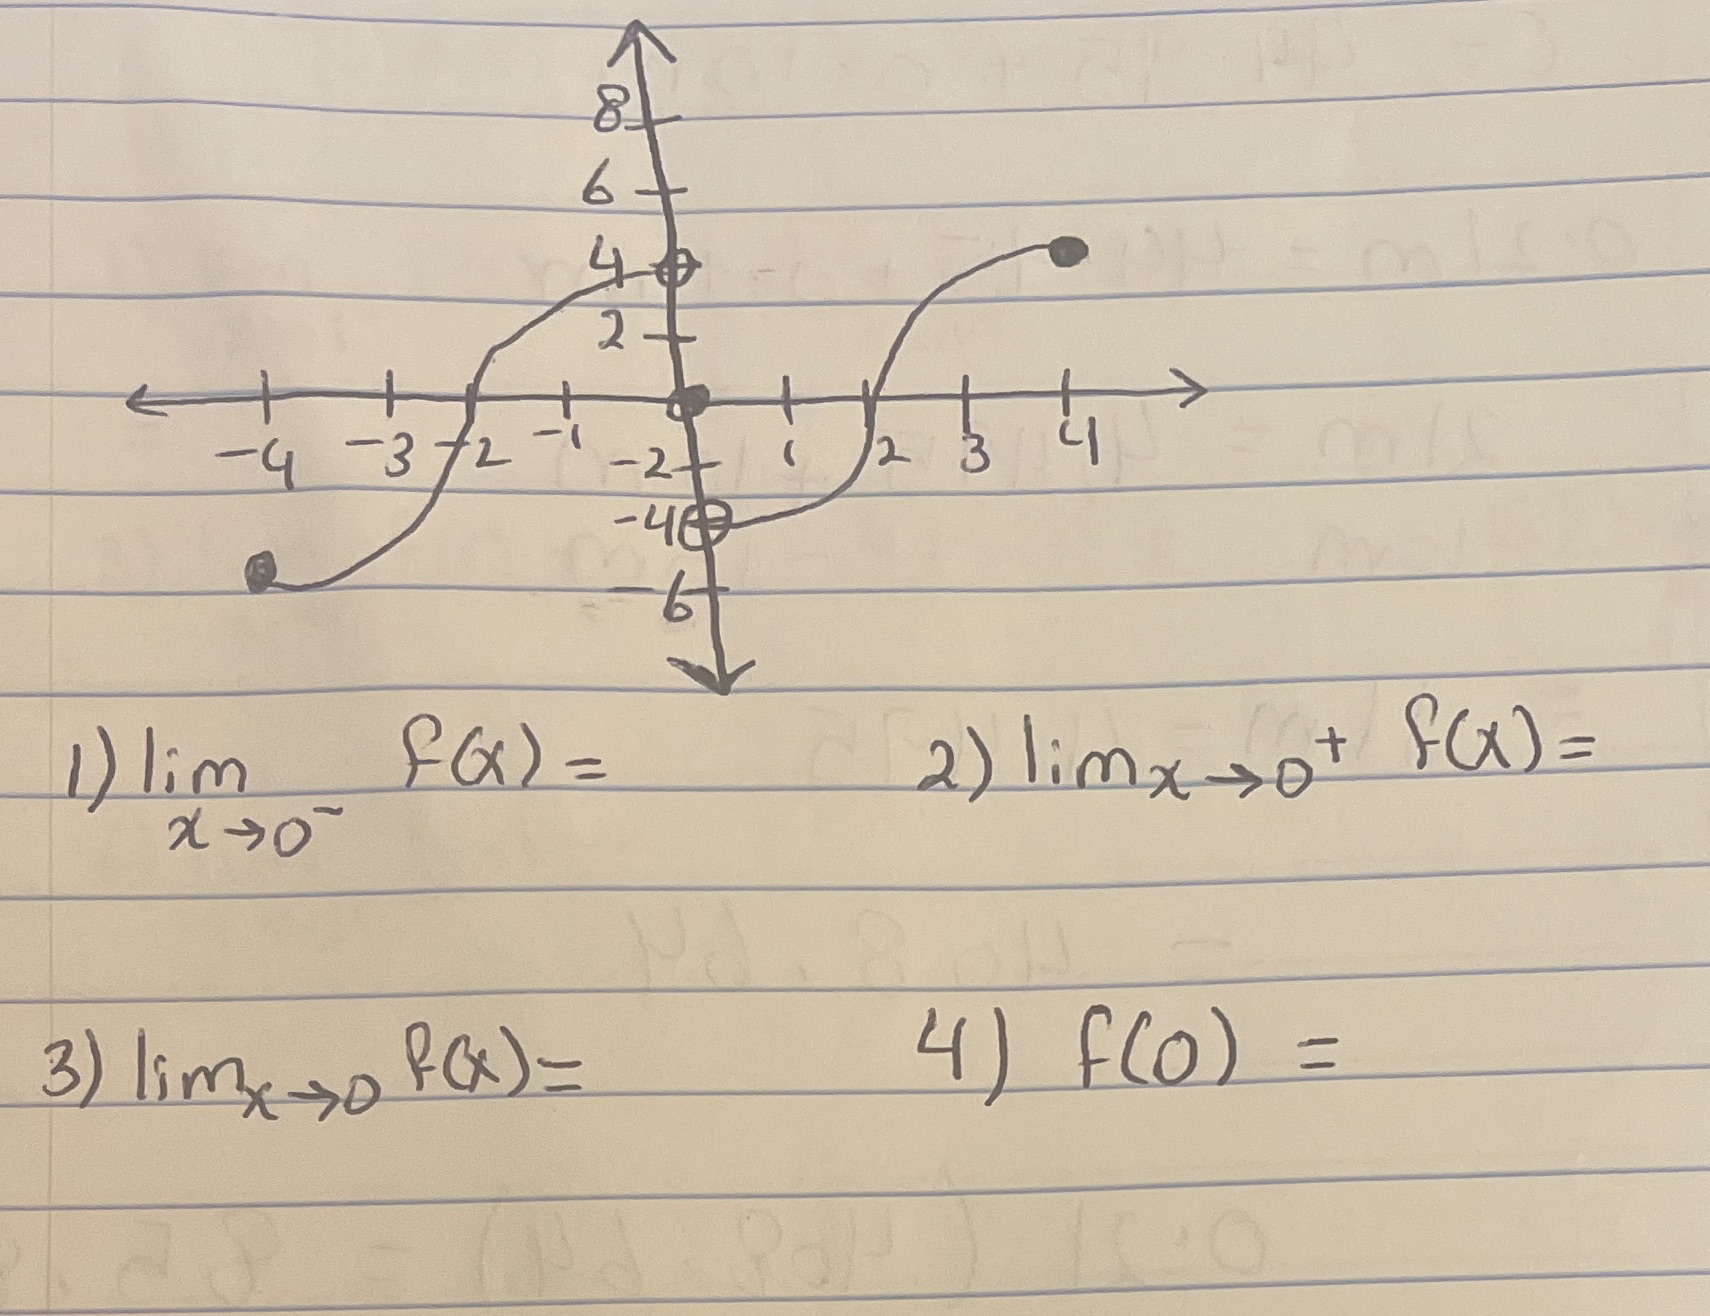 8
6
4
2
-4 -3 -2 -1 1 2 3 4
-2
-4
-6
1) lim f(x) =
x→0⁻
2) lim x→0⁺ f(x) =
3) lim x→0 f(x) =
4) f(0) =